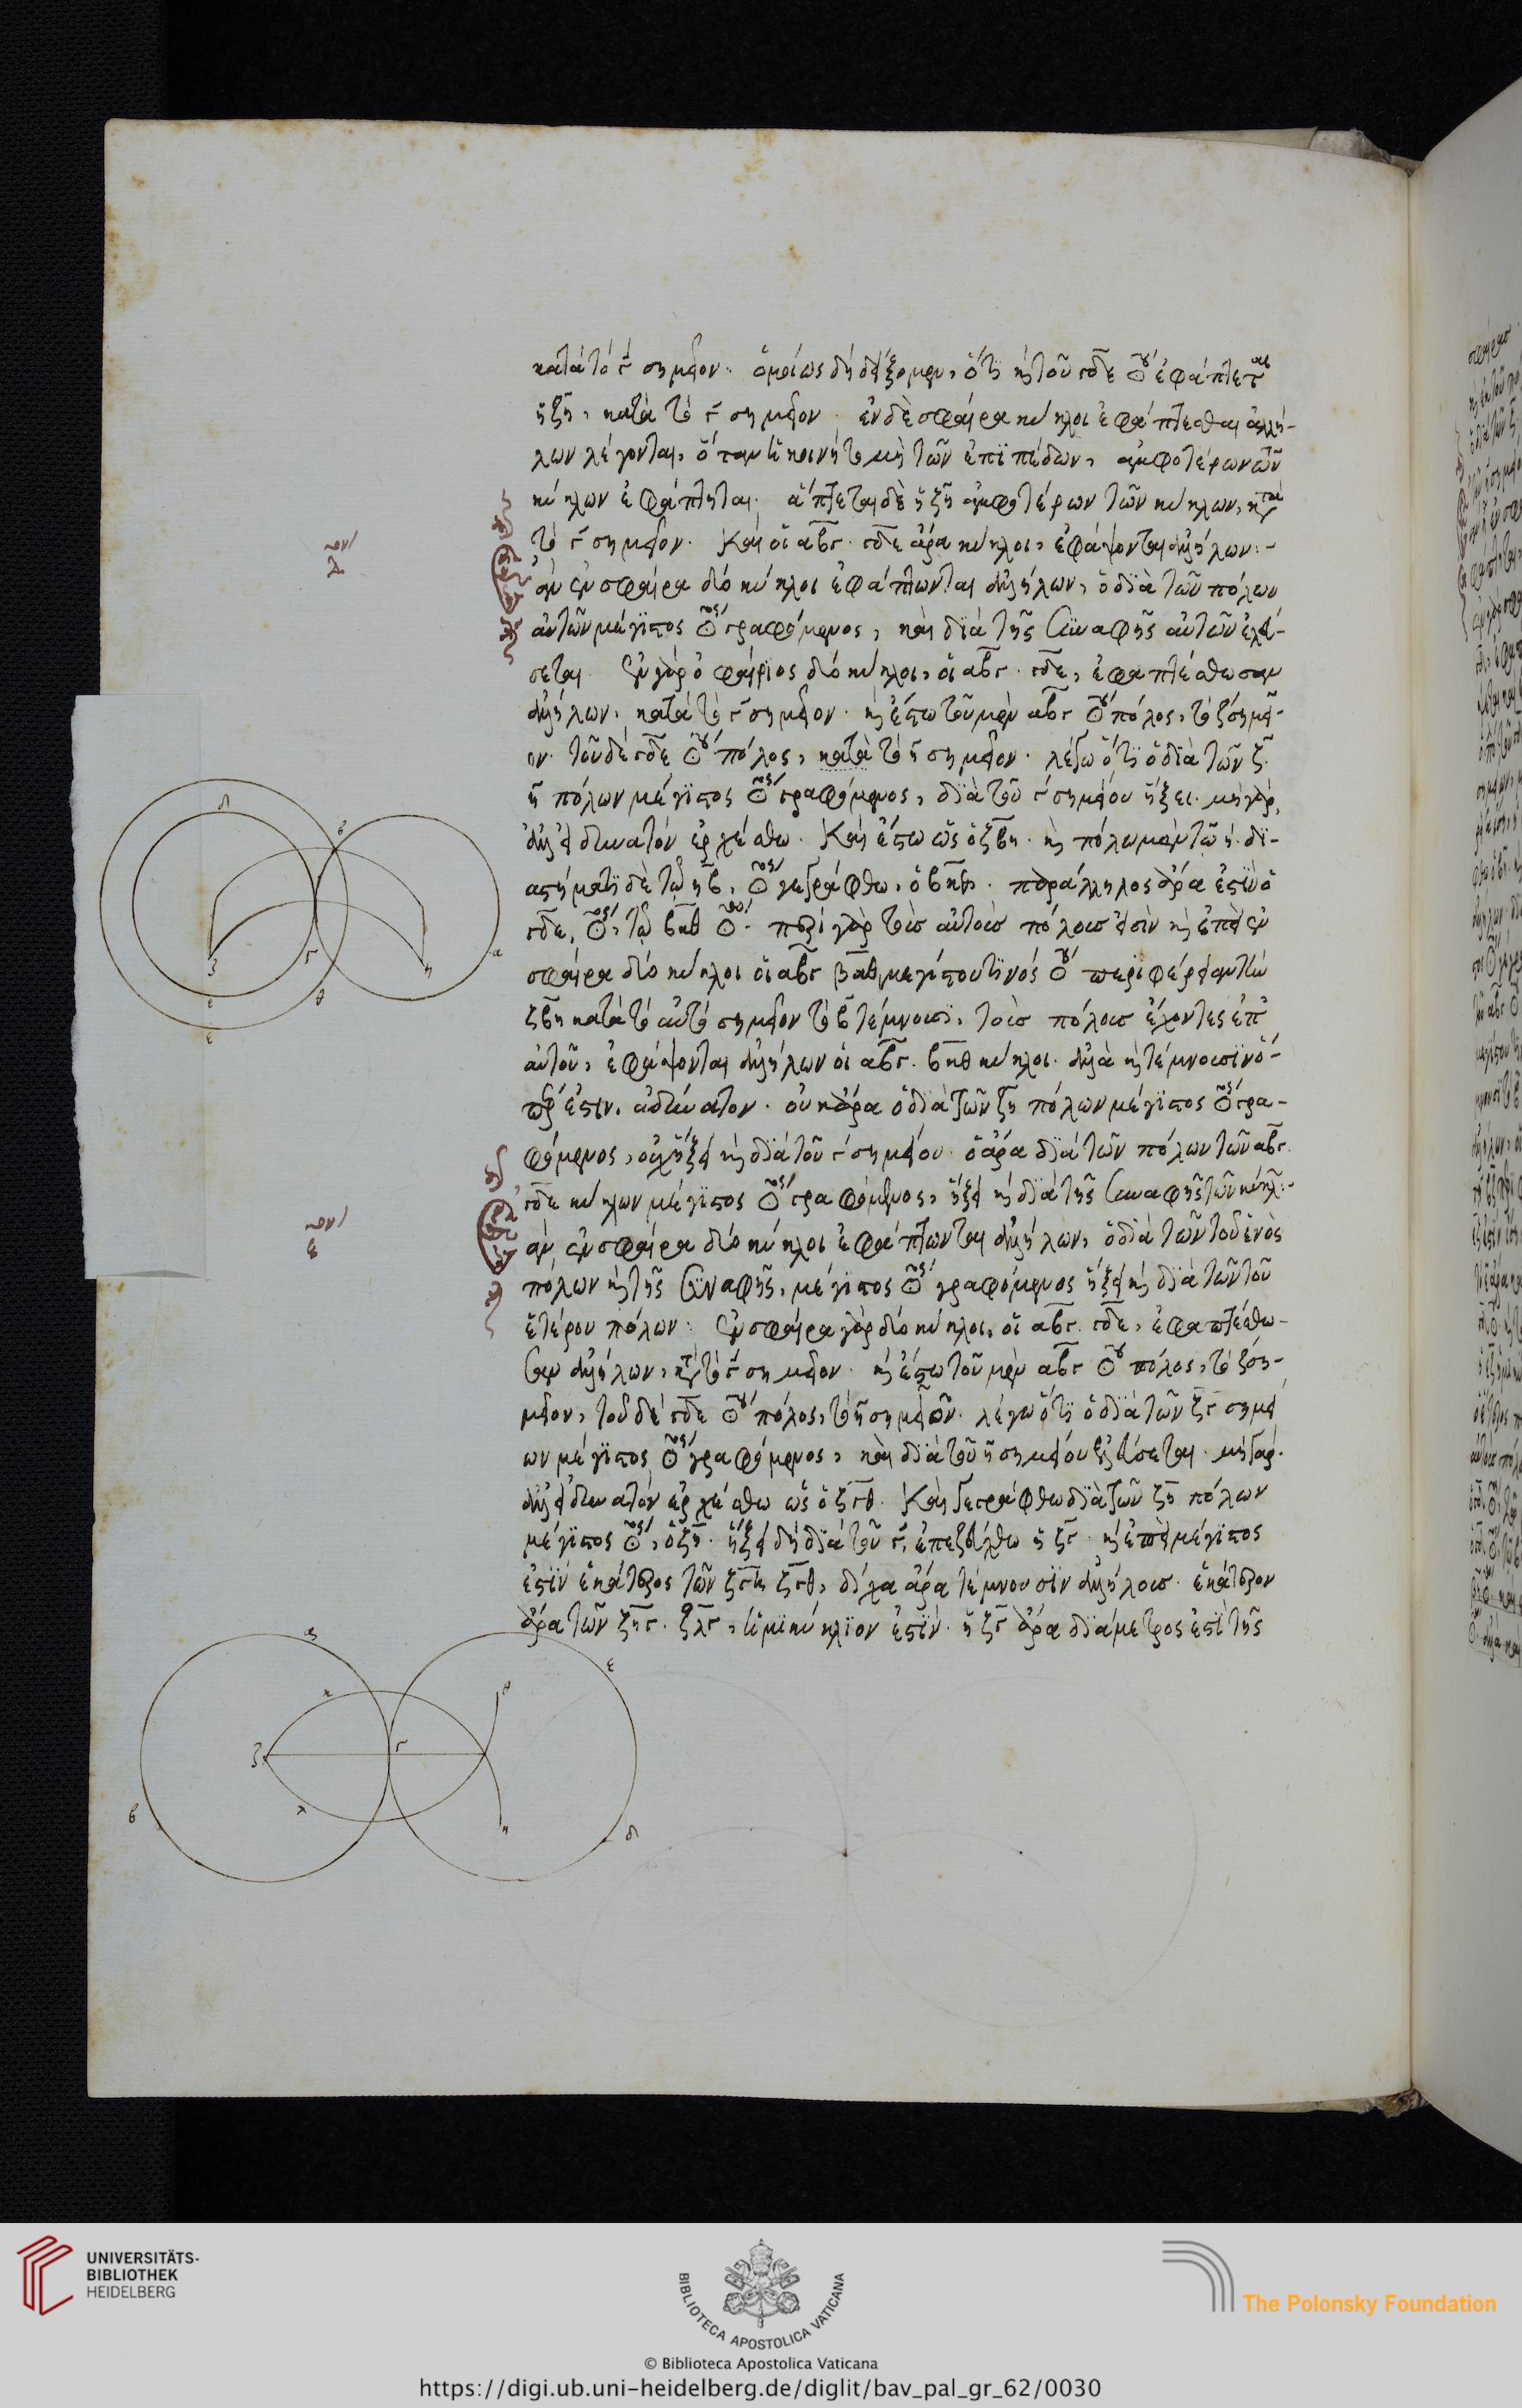 κατὰ τὸ γ σημεῖον. ὁμοίως δὴ δείξομεν, ὅτι καὶ τοῦ γδε ☉ου ἐφάπτεται
ἡ ζη, κατὰ τὸ γ σημεῖον. ἐν δὲ σφαίρα κύκλοι ἐφάπτεσθαι ἀλλή-
λων λέγονται, ὅταν ἡ κοινὴ τομὴ τῶν ἐπιπέδων, ἀμφοτέρων τῶν
κύκλων ἐφάπτηται. ἅπτεται δὲ ἡ ζη ἀμφοτέρων τῶν κύκλων, κατὰ
τὸ γ σημεῖον. καὶ οἱ αβγ. γδε ἄρα κύκλοι, ἐφάψονται ἀλλήλων:-
ἐὰν ἐν σφαίρα δύο κύκλοι ἐφάπτωνται ἀλλήλων, ὁ διὰ τῶν πόλων
αὐτῶν μέγιστος ☉ος γραφόμενος, καὶ διὰ τῆς συναφῆς αὐτῶν ἐλεύ-
σεται. ἐν γὰρ σφαίρα δύο κύκλοι, οἱ αβγ. γδε, ἐφαπτέσθωσαν
ἀλλήλων, κατὰ τὸ γ σημεῖον. καὶ ἔστω τοῦ μὲν αβγ ☉ου πόλος, τὸ ζ σημεῖ-
ον. τοῦ δὲ γδε ☉ου πόλος, κατὰ τὸ η σημεῖον. λέγω ὅτι ὁ διὰ τῶν ζ.
η πόλων μέγιστος ☉ος γραφόμενος, διὰ τοῦ γ σημείου ἥξει. μὴ γὰρ,
ἀλλ' εἰ δυνατόν ἐρχέσθω. καὶ ἔστω ὡς ὁ ζβη. καὶ πόλω μὲν τῷ η. δι-
αστήματι δὲ τῷ ηβ, ☉ος γεγράφθω, ὁ βηθ. παράλληλος ἄρα ἐστὶν ὁ
γδε, ☉ος, τῷ βηθ ☉ω. περὶ γὰρ τοὺς αὐτοὺς πόλους εἰσὶν καὶ ἐπεὶ ἐν
σφαίρα δύο κύκλοι οἱ αβγ βηθ μεγίστου τινός ☉ου περιφέρειαν τὴν
ζβη κατὰ τὸ αὐτὸ σημεῖον τὸ β τέμνουσι, τοὺς πόλους ἔχοντες ἐπ'
αὐτοῦ, ἐφάψονται ἀλλήλων οἱ αβγ. βηθ κύκλοι. ἀλλὰ καὶ τέμνουσιν ὅ-
περ ἐστὶν, ἀδύνατον. οὐκ ἄρα ὁ διὰ τῶν ζη πόλων μέγιστος ☉ος γρα-
φόμενος, οὐχ ἥξει καὶ διὰ τοῦ γ σημείου. ὁ ἄρα διὰ τῶν πόλων τῶν αβγ.
γδε κύκλων μέγιστος ☉ος γραφόμενος, ἥξει καὶ διὰ τῆς συναφῆς τῶν κύκλ:-
ἐὰν ἐν σφαίρα δύο κύκλοι ἐφάπτωνται ἀλλήλων, ὁ διὰ τῶν τοῦ ἑνὸς
πόλων καὶ τῆς συναφῆς, μέγιστος ☉ος γραφόμενος ἥξει καὶ διὰ τῶν τοῦ
ἑτέρου πόλων. ἐν σφαίρα γὰρ δύο κύκλοι, οἱ αβγ. γδε, ἐφαπτέσθω-
σαν ἀλλήλων, κατὰ τὸ γ σημεῖον. καὶ ἔστω τοῦ μὲν αβγ ☉ου πόλος, τὸ ζ ση-
μεῖον, τοῦ δὲ γδε ☉ου πόλος, τὸ η σημεῖον. λέγω ὅτι ὁ διὰ τῶν ζγ σημεί
ων μέγιστος ☉ος γραφόμενος, καὶ διὰ τοῦ η σημείου ἐλεύσεται. μὴ γάρ.
ἀλλ' εἰ δυνατόν ἐρχέσθω ὡς ὁ ζγθ. καὶ γεγράφθω διὰ τῶν ζη πόλων
μέγιστος ☉ος, ὁ ζη. ἥξει δὴ διὰ τοῦ γ, ἐπεζεύχθω ἡ ζγ. καὶ ἐπεὶ μέγιστος
ἐστὶν ἑκάτερος τῶν ζγη ζγθ, δίχα ἄρα τέμνουσιν ἀλλήλους. ἑκάτερον
ἄρα τῶν ζηγ. ζλγ, ἡμικύκλιον ἐστὶν. ἡ ζγ ἄρα διάμετρος ἐστὶ τῆς
UNIVERSITÄTS-
BIBLIOTHEK
HEIDELBERG
BIBLIOTECA APOSTOLICA VATICANA
The Polonsky Foundation
© Biblioteca Apostolica Vaticana
https://digi.ub.uni-heidelberg.de/diglit/bav_pal_gr_62/0030